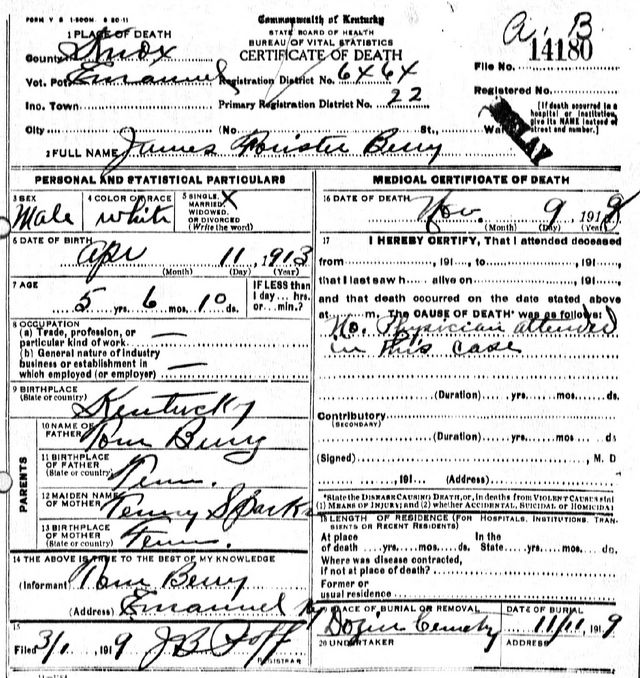 FORM V S 1-500M. 8 20-11
Commonwealth of Kentucky
STATE BOARD OF HEALTH
BUREAU OF VITAL STATISTICS
CERTIFICATE OF DEATH
A. B.
File No. 14180
1 PLACE OF DEATH
County Knox
Vot. Pct. Emanuel Registration District No. 6X6X
Inc. Town Primary Registration District No. 22
Registered No.
[If death occurred in a hospital or institution, give its NAME instead of street and number.]
City (No St., War
DELAY
2 FULL NAME James Forister Berry
PERSONAL AND STATISTICAL PARTICULARS
3 SEX Male
4 COLOR OR RACE white
5 SINGLE, X
MARRIED,
WIDOWED,
OR DIVORCED
(Write the word)
6 DATE OF BIRTH
Apr 11, 1913
(Month) (Day) (Year)
7 AGE
5 yrs. 6 mos. 10 ds.
IF LESS than
1 day... hrs.
or min.?
8 OCCUPATION
(a) Trade, profession, or
particular kind of work —
(b) General nature of industry
business or establishment in
which employed (or employer) —
9 BIRTHPLACE
(State or country) Kentucky
PARENTS
10 NAME OF
FATHER Tom Berry
11 BIRTHPLACE
OF FATHER
(State or country) Tenn.
12 MAIDEN NAME
OF MOTHER Sparks
13 BIRTHPLACE
OF MOTHER
(State or country) Tenn.
14 THE ABOVE IS TRUE TO THE BEST OF MY KNOWLEDGE
(Informant) Tom Berry
(Address) Emanuel Ky
15
Filed 3/1, 1919 J.B.
REGISTRAR
MEDICAL CERTIFICATE OF DEATH
16 DATE OF DEATH
Nov. 9, 1918
(Month) (Day) (Year)
17 I HEREBY CERTIFY, That I attended deceased
from , 191 , to , 191 ,
that I last saw h alive on , 191 ,
and that death occurred on the date stated above
at m. The CAUSE OF DEATH* was as follows:
No. Physician attended
in this case
(Duration) yrs. mos. ds.
Contributory
(SECONDARY)
(Duration) yrs. mos. ds
(Signed) , M. D
, 191 (Address)
*State the DISEASE CAUSING DEATH, or, in deaths from VIOLENT CAUSES stat
(1) MEANS OF INJURY; and (2) whether ACCIDENTAL, SUICIDAL or HOMICIDAL
18 LENGTH OF RESIDENCE (FOR HOSPITALS, INSTITUTIONS, TRAN-
SIENTS OR RECENT RESIDENTS)
At place In the
of death yrs. mos. ds. State, yrs. mos. ds.
Where was disease contracted,
if not at place of death?
Former or
usual residence
19 PLACE OF BURIAL OR REMOVAL
DATE OF BURIAL
11/11, 1919
20 UNDERTAKER
ADDRESS